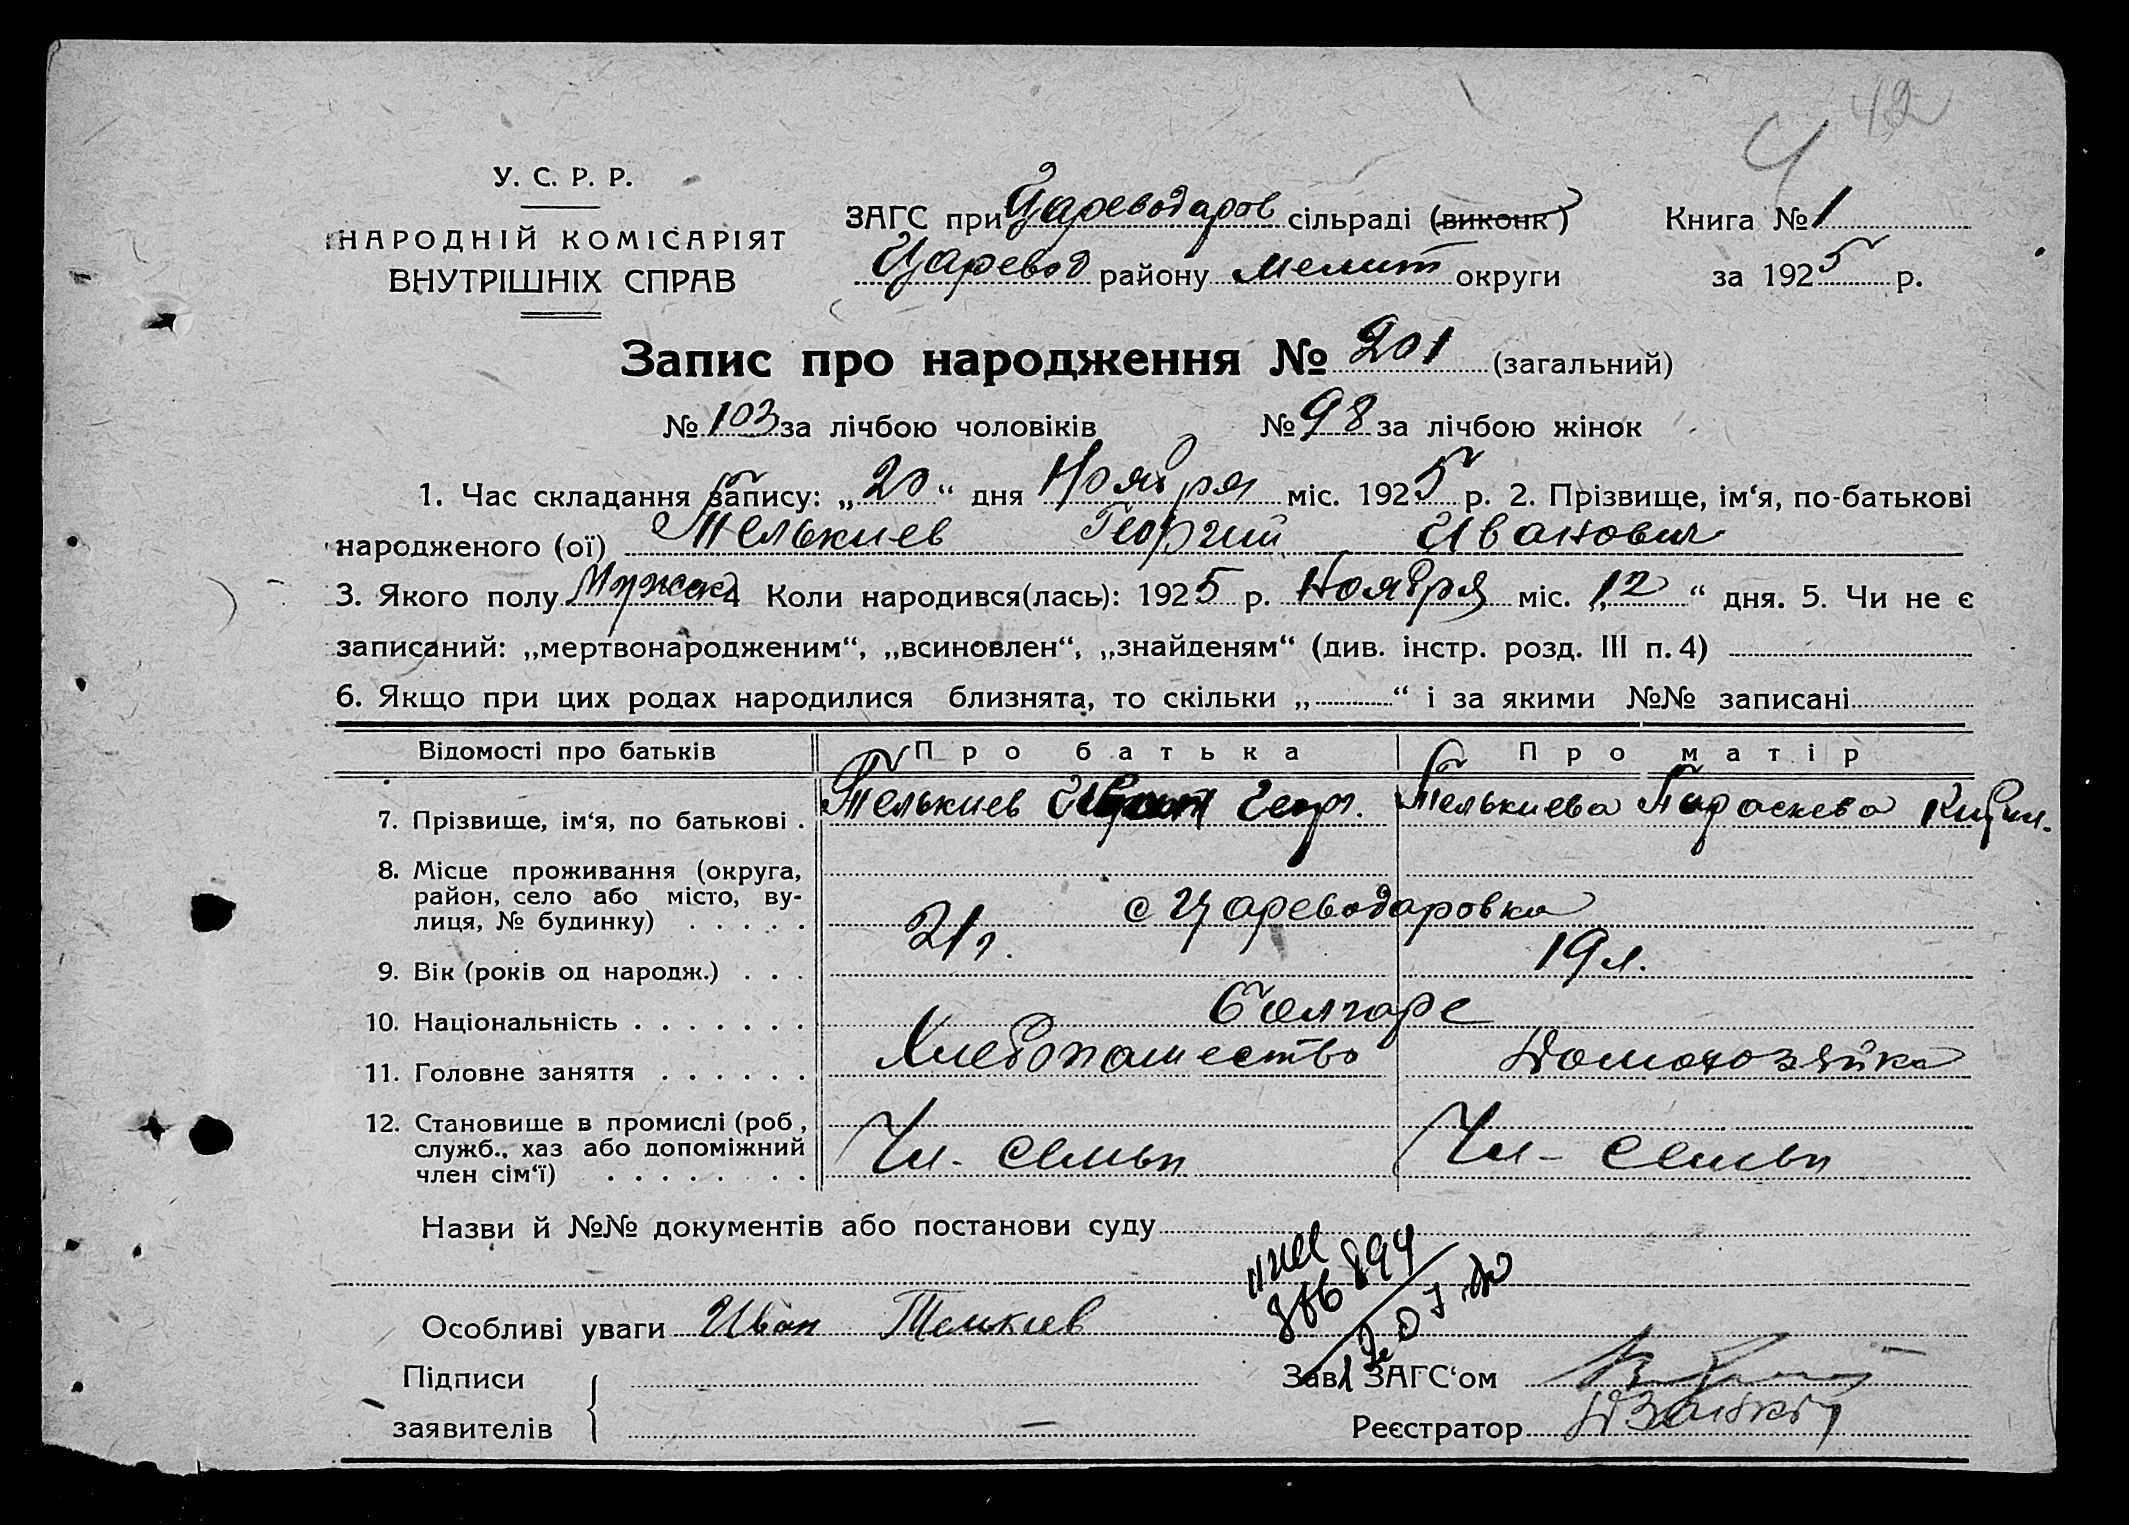 42
4
У. С. Р. Р.
НАРОДНІЙ КОМІСАРІЯТ
ВНУТРІШНІХ СПРАВ
ЗАГС при Цареводаров сільраді (виконк) Книга № 1
Царевод району Мелит округи за 1925 р.
Запис про народження № 201 (загальний)
№ 103 за лічбою чоловіків № 98 за лічбою жінок
1. Час складання запису: „20“ дня Ноября міс. 1925 р. 2. Прізвище, ім‘я, по-батькові
народженого (ої) Телькиев Георгий Иванович
3. Якого полу Мужск 4 Коли народився(лась): 1925 р. Ноября міс. „12“ дня. 5. Чи не є
записаний: „мертвонародженим“, „всиновлен“, „знайденям“ (див. інстр. розд. III п. 4)
6. Якщо при цих родах народилися близнята, то скільки „ “ і за якими №№ записані
Відомості про батьків Про батька Про матір
7. Прізвище, ім‘я, по батькові . Телькиев Иван Геор. Телькиева Параскева Кирил.
8. Місце проживання (округа,
район, село або місто, ву-
лиця, № будинку) . . . . . с Цареводаровка
9. Вік (років од народж.) . . . 21 г. 19 л.
10. Національність . . . . . . . Болгаре
11. Головне заняття . . . . . . Хлебопашество Домохозяйка
12. Становище в промислі (роб ,
служб., хаз або допоміжний
член сім‘ї) . . . . . . . Чл- семьи Чл- семьи
Назви й №№ документів або постанови суду
Особливі уваги Иван Телькиев
Підписи
заявителів
Зав. ЗАГС‘ом
Реєстратор